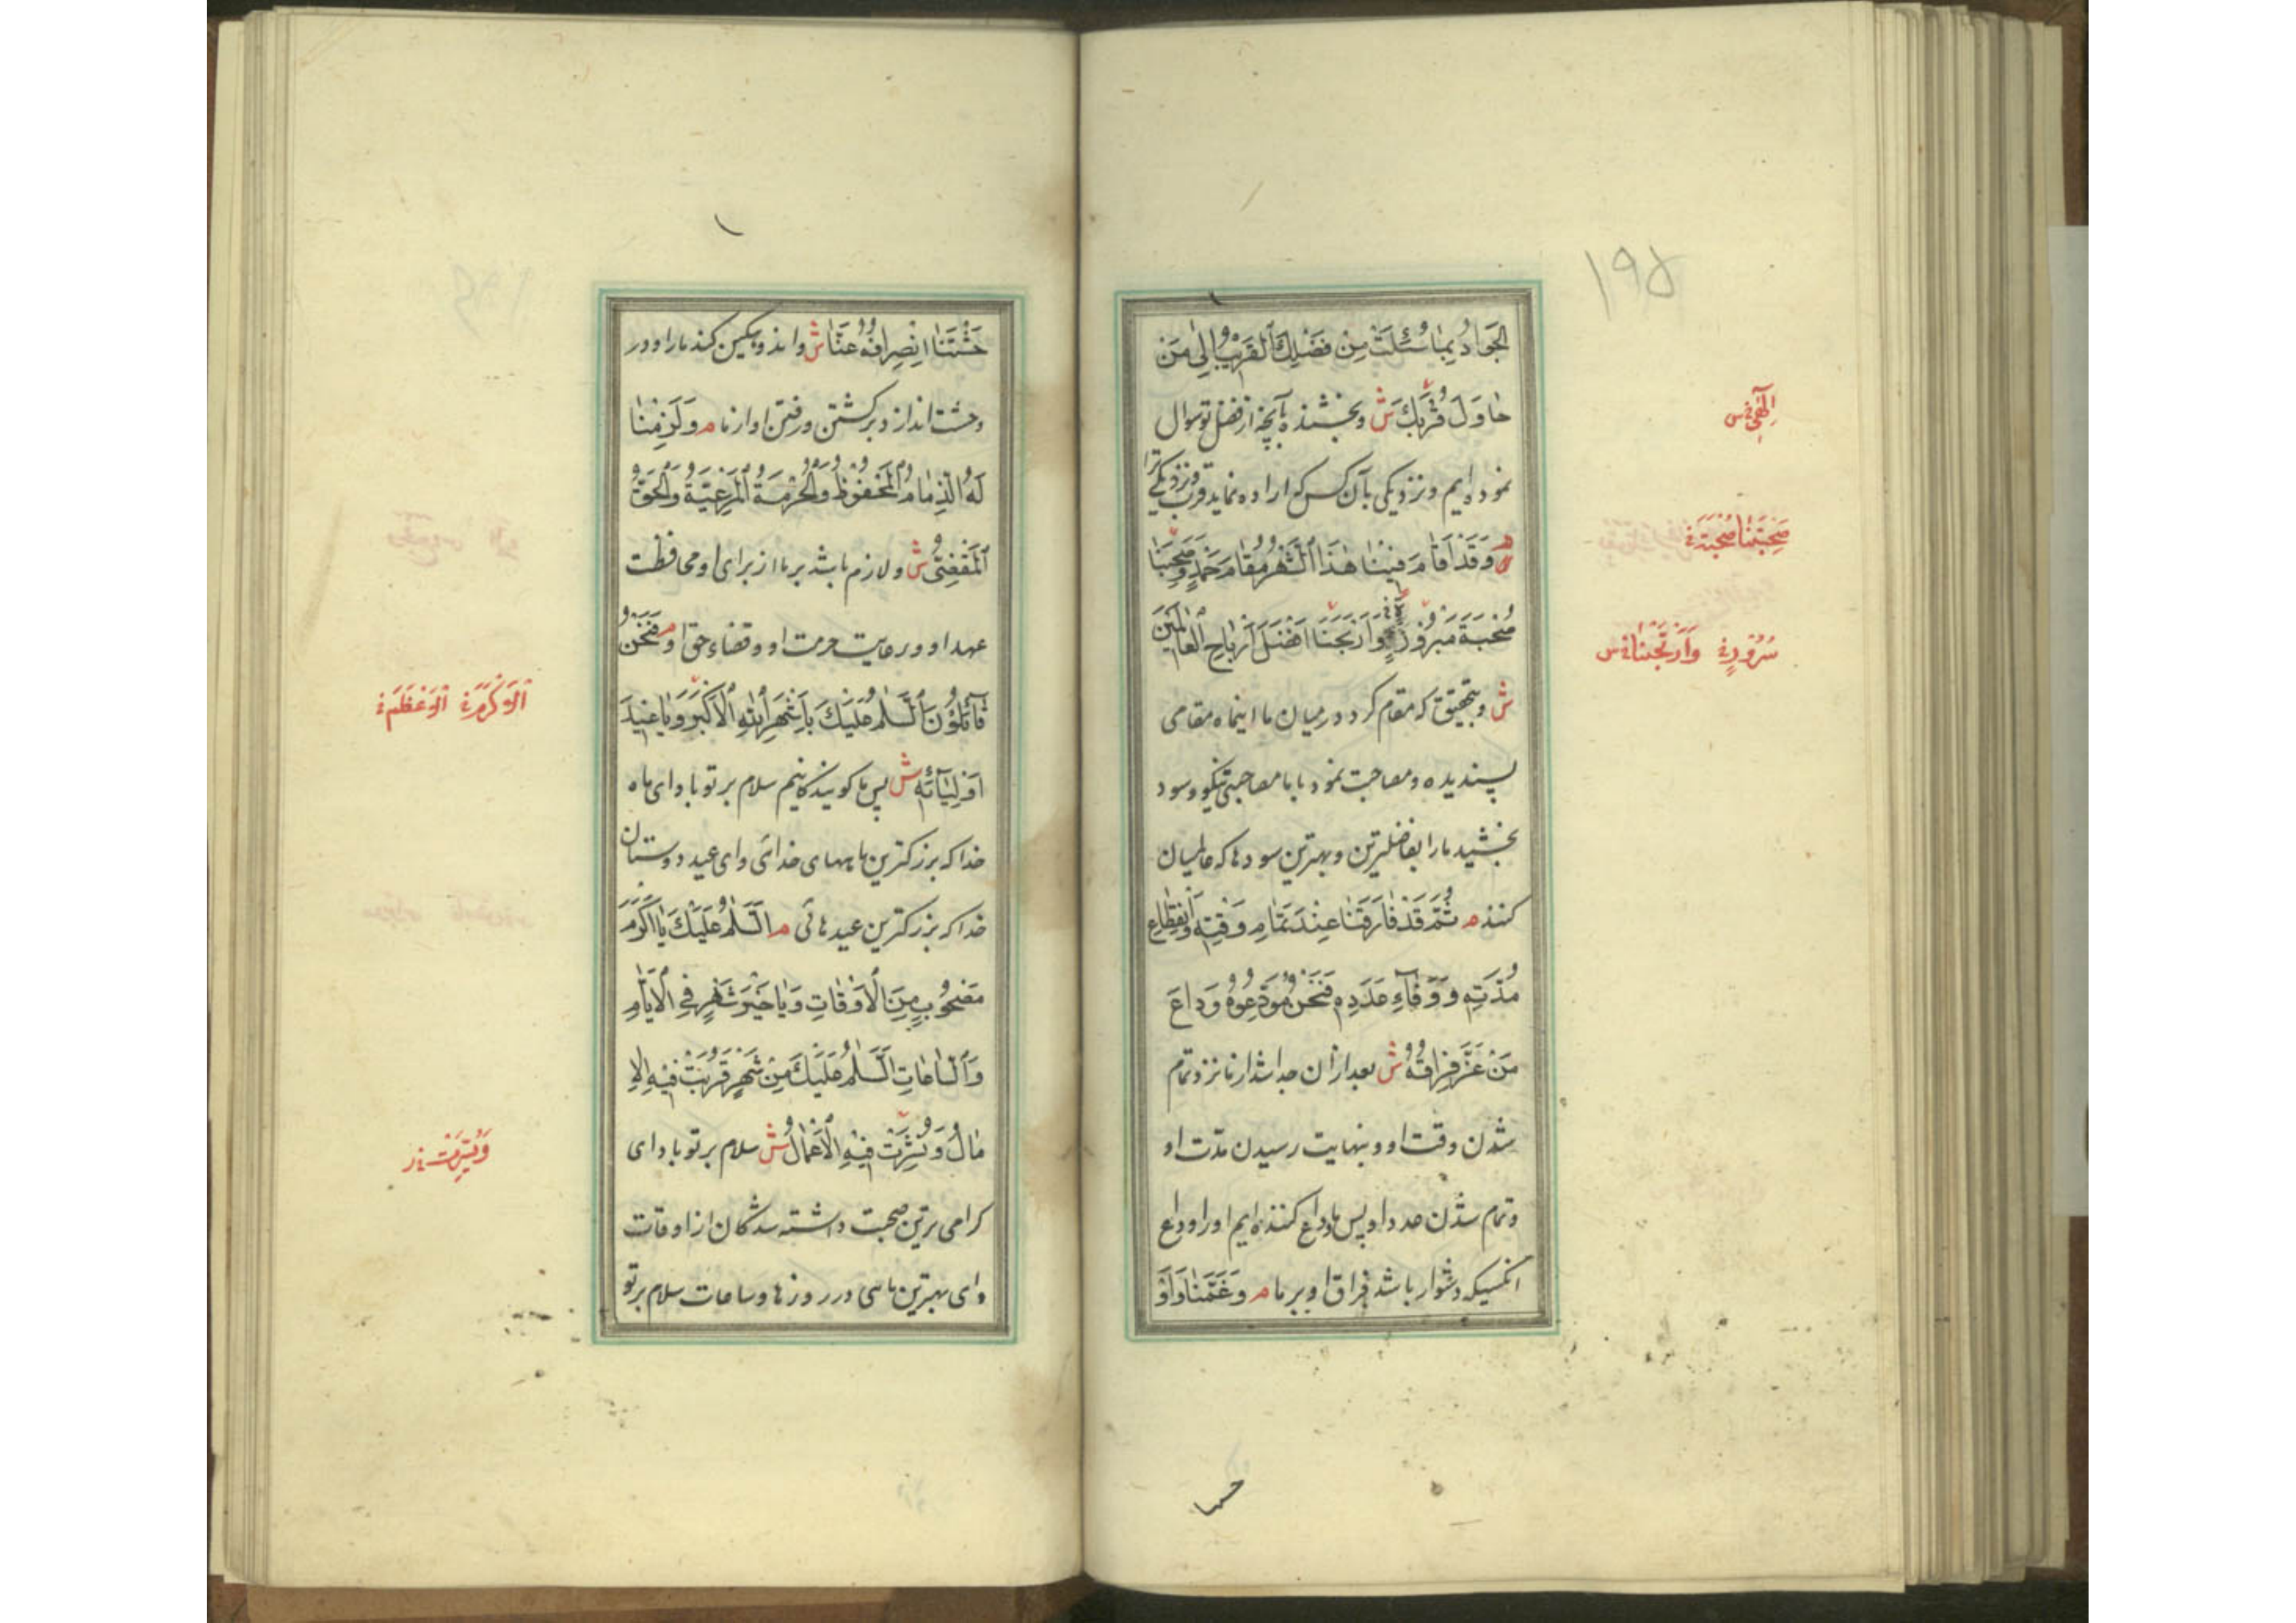 ۱۹۵
الجَوَادُ بِمَا سُئِلْتَ مِنْ فَضْلِكَ الْقَرِيبُ اِلٰى مَنْ
حَاوَلَ قُرْبَكَ ش وبخشنده بآنچه از فضل تو سوال
نموده ایم ونزدیکی بآن کس که اراده نماید قرب ونزدیکی ترا
م وَقَدْ اَقَامَ فِينَا هٰذَا الشَّهْرُ مُقَامَ حَمْدٍ وَصَحِبَنَا
صُحْبَةَ مَبْرُورٍ وَاَرْبَحَنَا اَفْضَلَ اَرْبَاحِ الْعَالَمِينَ
ش وبتحقیق که مقام کرد در میان ما اینماه مقامی
پسندیده ومصاحبت نمود با ما مصاحبتی نیکو وسود
بخشید ما را بفاضلترین وبهترین سودها که عالمیان
کنند م ثُمَّ قَدْ فَارَقَنَا عِنْدَ تَمَامِ وَقْتِهِ وَانْقِطَاعِ
مُدَّتِهِ وَوَفَاءِ عَدَدِهِ فَنَحْنُ مُوَدِّعُوهُ وَدَاعَ
مَنْ عَزَّ فِرَاقُهُ ش بعد از ان جدا شد از ما نزد تمام
شدن وقت او و بنهایت رسیدن مدّت او
وتمام شدن عدد او پس ما وداع کننده ایم او را وداع
انکسیکه دشوار باشد فراق او بر ما م وَغَمَّنَا وَاَوْ
اِلٰهِي فى س
صَحِبَتْنَا صُحْبَةَ
سُرُورٍ وَاَرْبَحَنَا فى س
حَشَتَنَا انْصِرَافُهُ عَنَّا ش واندوهکین کند ما را و در
وحشت اندازد برکشتن ورفتن او از ما م وَلَزِمَنَا
لَهُ الذِّمَامُ الْمَحْفُوظُ وَالْحُرْمَةُ الْمَرْعِيَّةُ وَالْحَقُّ
الْمَقْضِيُّ ش ولازم باشد بر ما از برای او محافظت
عهد او ورعایت حرمت او وقضاء حق او م فَنَحْنُ
قَائِلُونَ اَلسَّلَامُ عَلَيْكَ يَا شَهْرَ اللهِ الْاَكْبَرَ وَيَا عِيدَ
اَوْلِيَائِهِ ش پس ما کوینده کانیم سلام بر تو باد ای ماه
خدا که بزرکترین ماههای خدائی وای عید دوستان
خدا که بزرکترین عیدهائی م اَلسَّلَامُ عَلَيْكَ يَا اَكْرَمَ
مَصْحُوبٍ مِنَ الْاَوْقَاتِ وَيَا خَيْرَ شَهْرٍ فِي الْاَيَّامِ
وَالسَّاعَاتِ اَلسَّلَامُ عَلَيْكَ مِنْ شَهْرٍ قَرُبَتْ فِيهِ الْاٰ
مَالُ وَنُشِرَتْ فِيهِ الْاَعْمَالُ ش سلام بر تو باد ای
کرامی ترین صحبت داشته شدکان از اوقات
وای بهترین ماهی در روزها وساعات سلام بر تو
الْاَكْرَمَ الْاَعْظَمَ